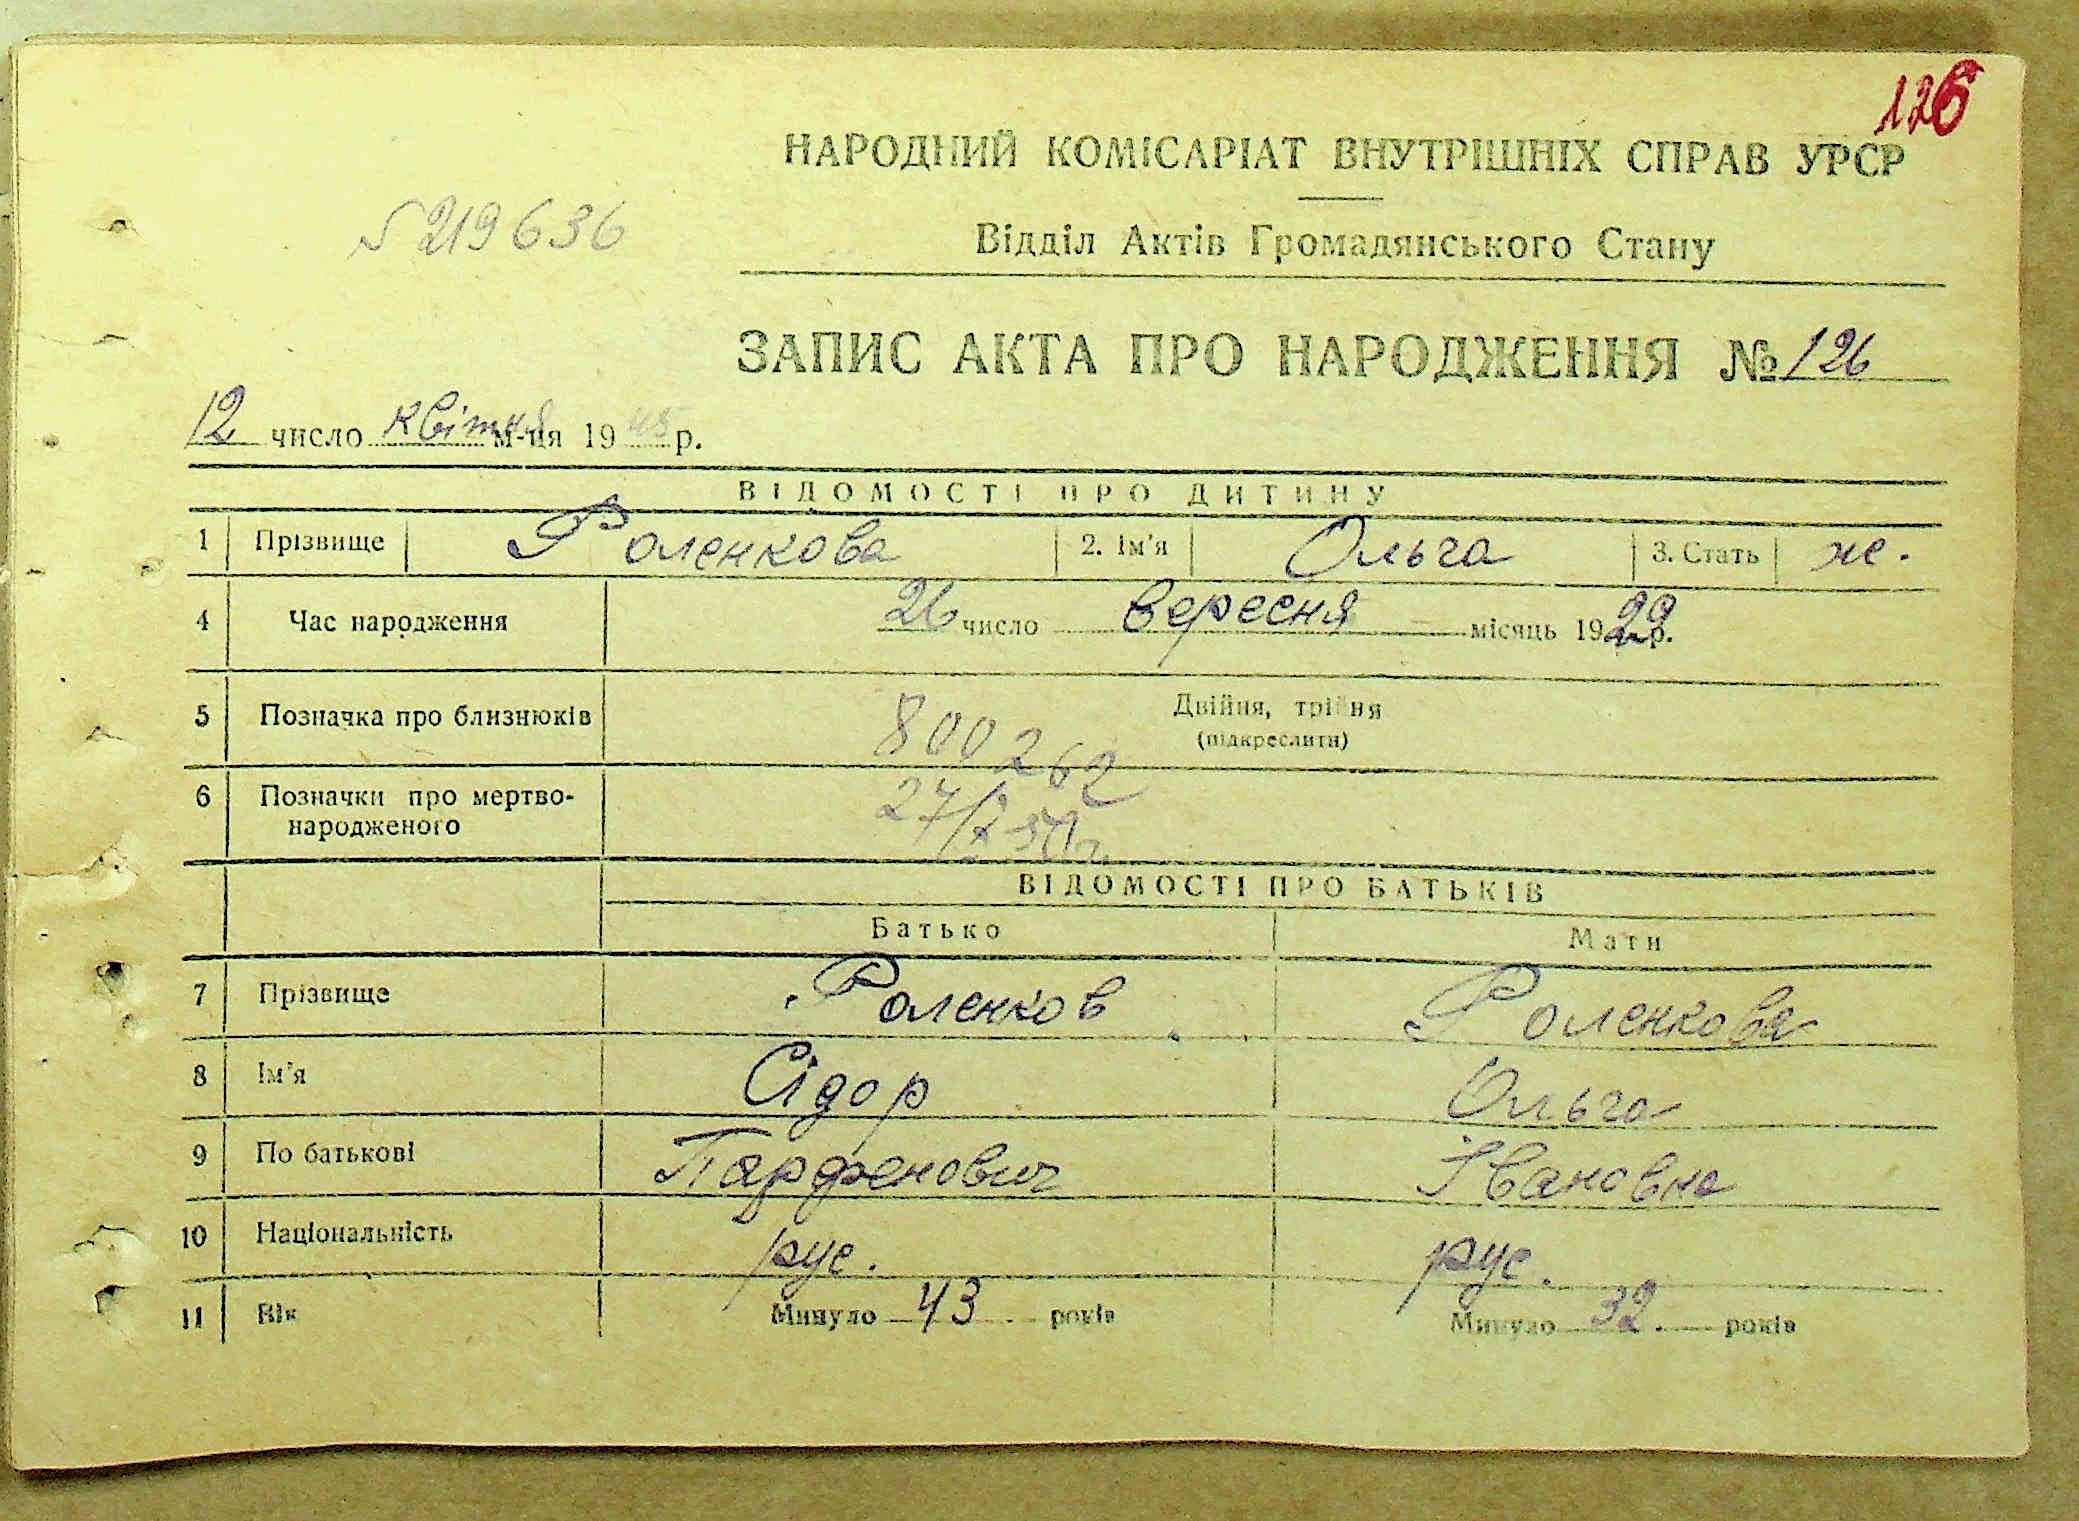 126
НАРОДНИЙ КОМІСАРІАТ ВНУТРІШНІХ СПРАВ УРСР
219636
Відділ Актів Громадянського Стану
ЗАПИС АКТА ПРО НАРОДЖЕННЯ № 126
12 число квітня м-ця 1945 р.
ВІДОМОСТІ ПРО ДИТИНУ
1 Прізвище Роленкова 2. Ім'я Ольга 3. Стать ж.
4 Час народження 26 число вересня місяць 1929 р.
5 Позначка про близнюків 800262 Двійня, трійня
(підкреслити)
6 Позначки про мертво-
народженого
ВІДОМОСТІ ПРО БАТЬКІВ
Батько Мати
7 Прізвище Роленков Роленкова
8 Ім'я Сідор Ольга
9 По батькові Парфенович Івановна
10 Національність рус. рус.
11 Вік Минуло 43 років Минуло 32 років